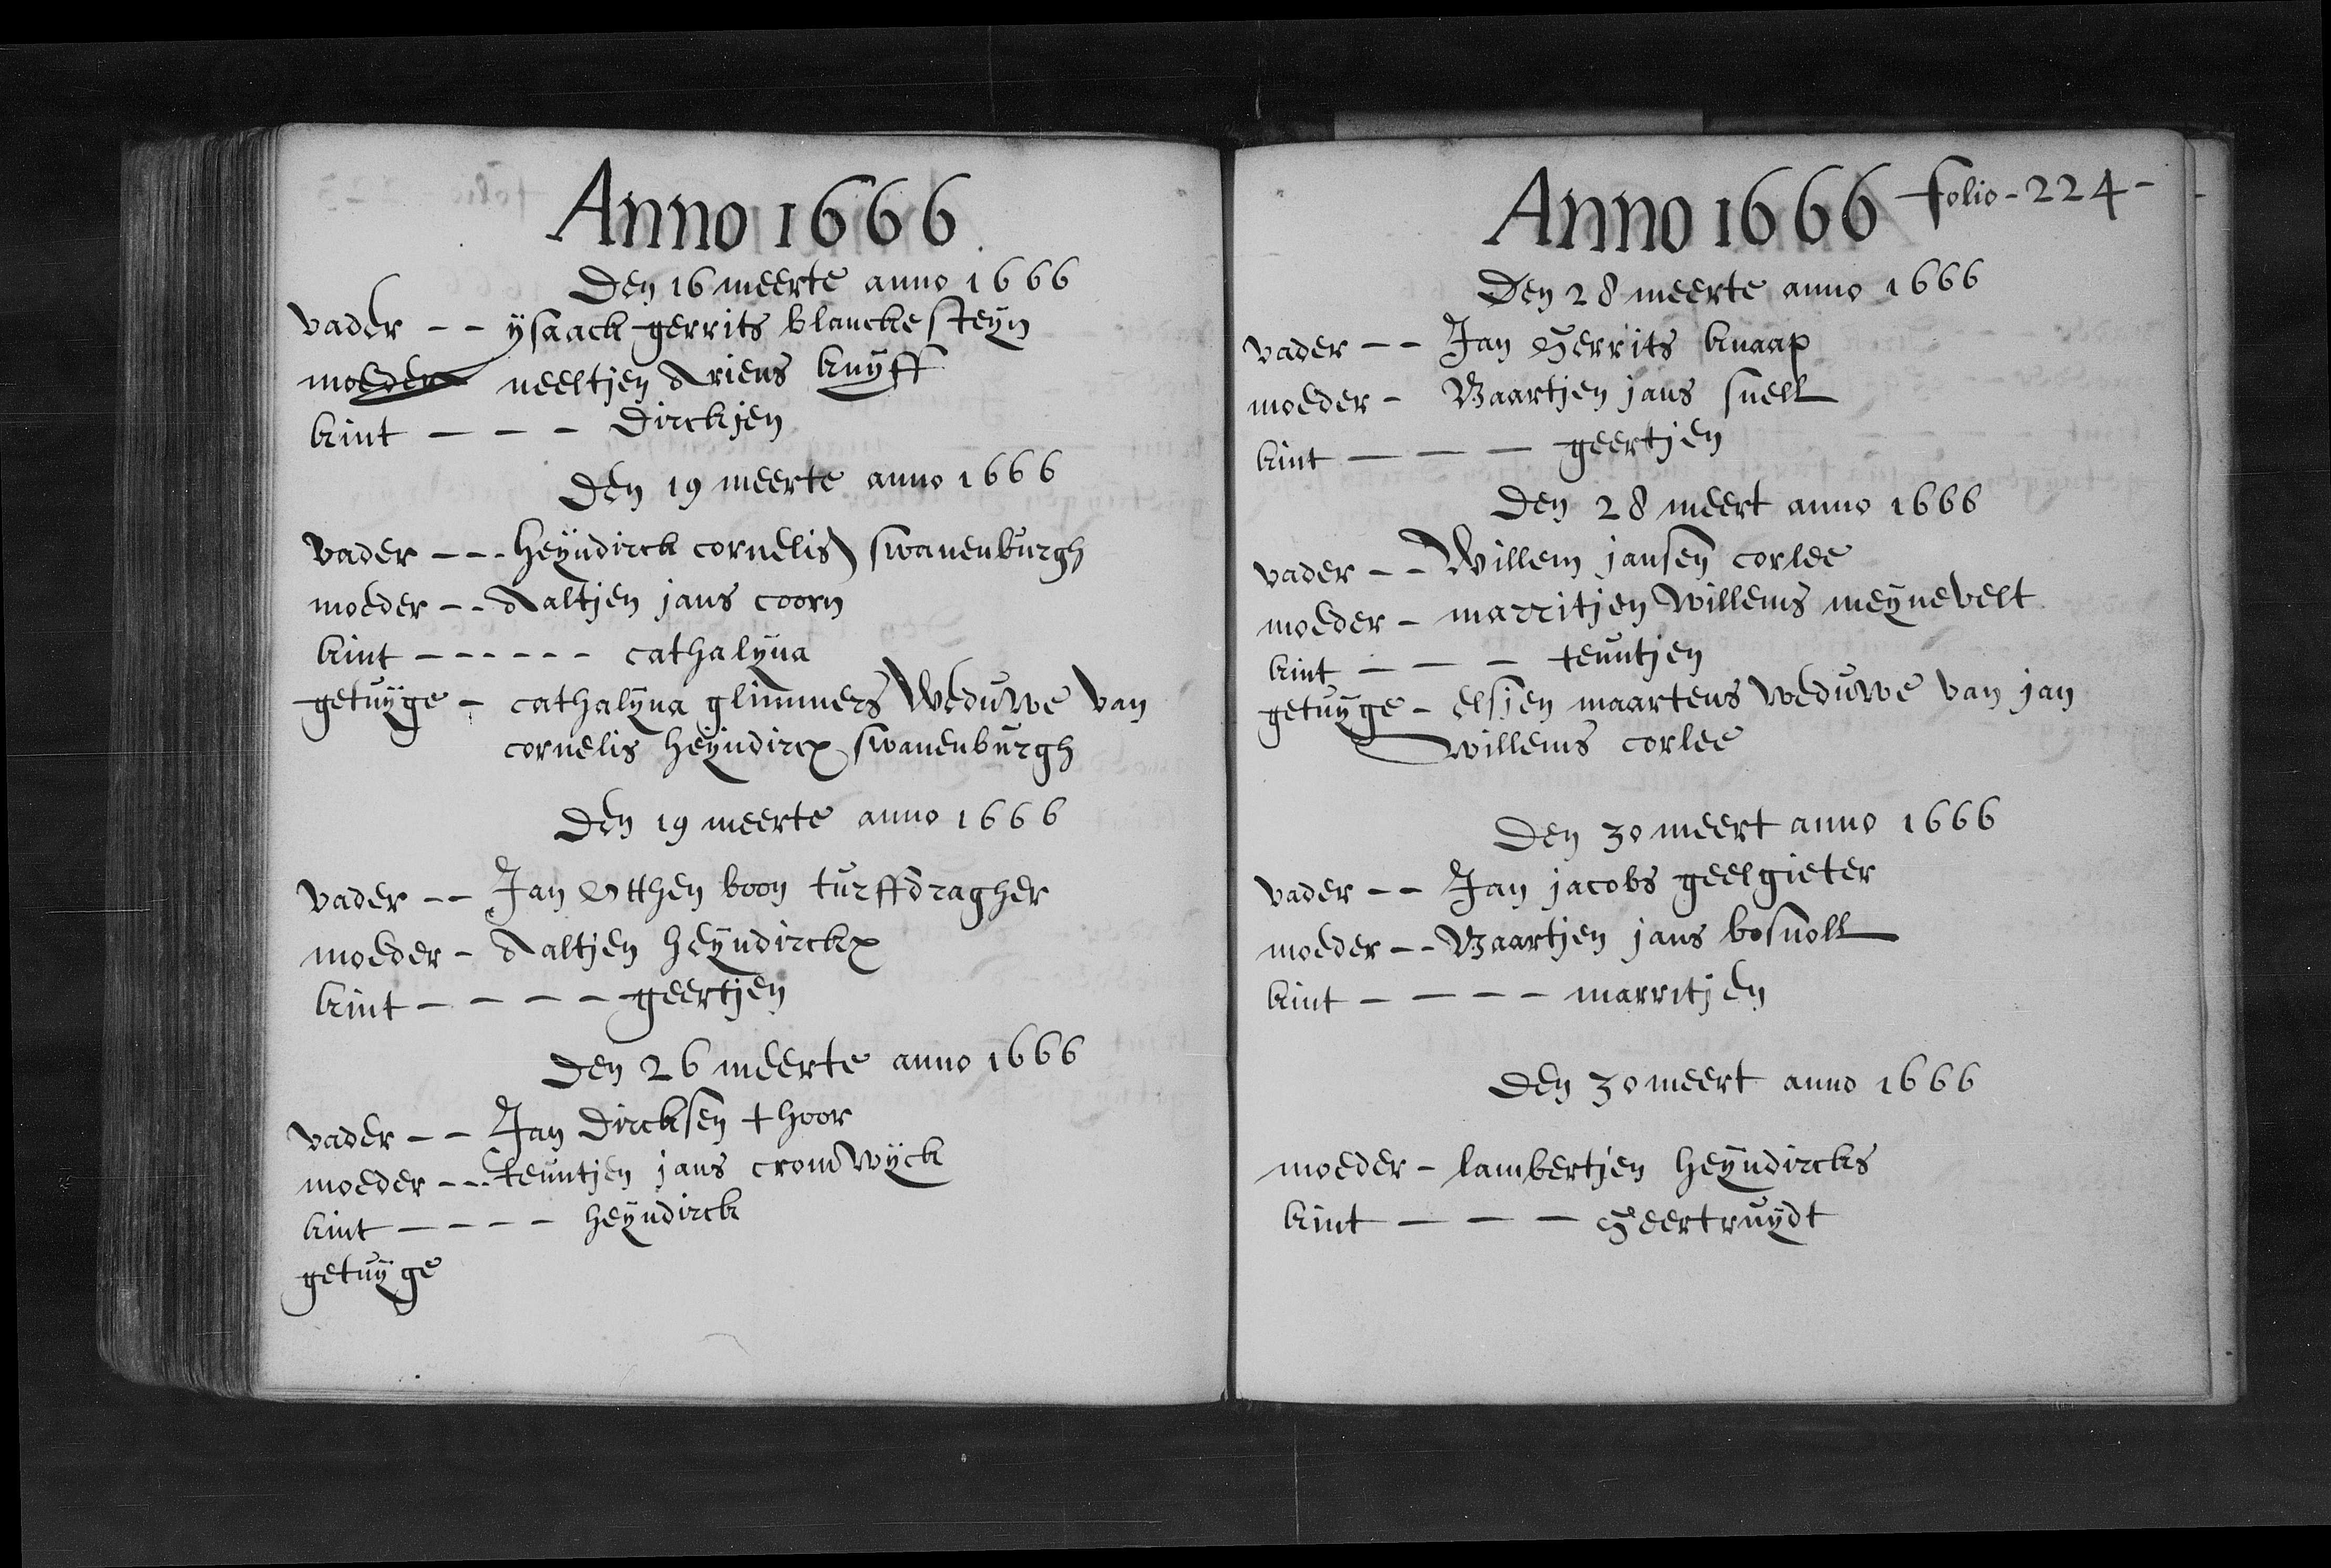 Anno 1666
Den 16 meerte anno 1666
vader -- ysaack gerrits blanckesteyn
moeder neeltjen Ariens knyff
kint - - - Dirckjen
Den 19 meerte anno 1666
vader --- heyndirck cornelis swanenburgh
moeder -- Aaltjen jans coorn
kint ------ cathalyna
getuyge - cathalyna glimmers weduwe van
cornelis heyndircx swanenburgh
Den 19 meerte anno 1666
vader -- Jan Otthen boon turffdragher
moeder - Aaltjen heyndirckx
kint - - - - geertjen
Den 26 meerte anno 1666
vader -- Jan Dircksen thoor
moeder --- teuntjen jans cromwyck
kint - - - - heyndirck
getuyge
Anno 1666 folio-224-
Den 28 meerte anno 1666
vader -- Jan Gerrits knaap
moeder - Maartjen jans snell
kint - - - geertjen
Den 28 meert anno 1666
vader -- Willem jansen corlee
moeder - marritjen Willems meynevelt
kint - - - teuntjen
getuyge - elsjen maartens weduwe van jan
willems corlee
Den 30 meert anno 1666
vader -- Jan jacobs geelgieter
moeder -- Maartjen jans bosnoll
kint - - - - marritjen
Den 30 meert anno 1666
moeder - lambertjen heyndircks
kint - - - Geertruydt